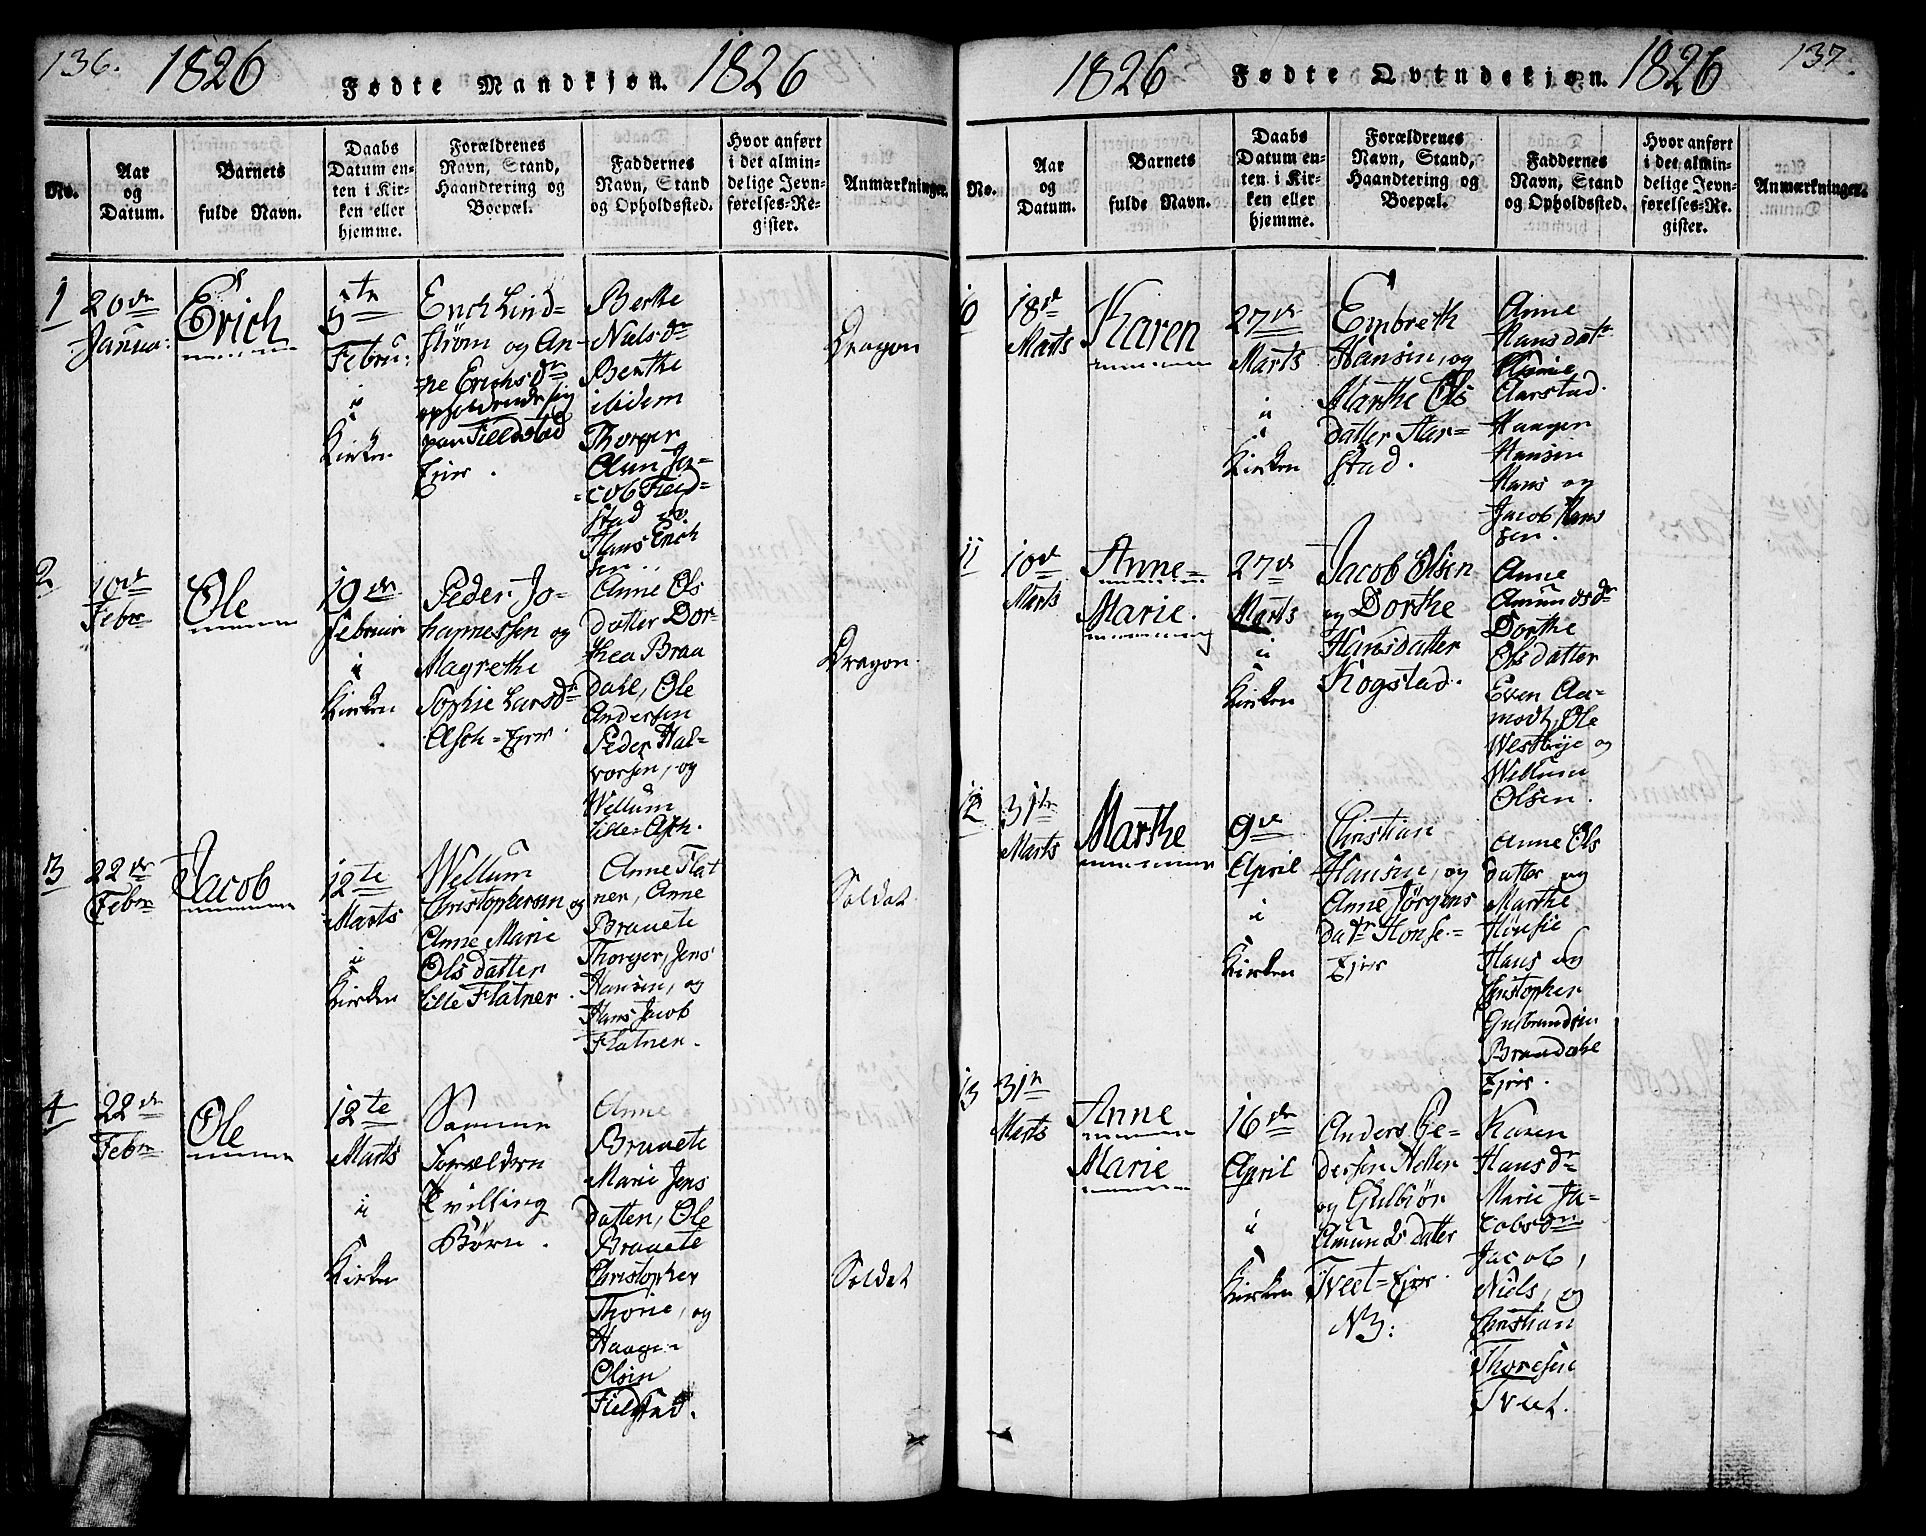 136.
1826
Fødte Mandkjøn.
1826
No.
Aar
og
Datum.
Barnets
fulde Navn.
Daabs
Datum en-
ten i Kir-
ken eller
hjemme.
Forældrenes
Navn, Stand,
Haandtering og
Boepæl.
Faddernes
Navn, Stand
og Opholdssted.
Hvor anført
i det almin-
delige Jevn-
førelses-Re-
gister.
Anmærkninger.
1
20de
Janua:
Erich
5te
Febru:
i
Kirke.
Erich Lind-
strøm og An-
ne Erichsdr
opholdende sig
paa
Eier.
Berthe
Nielsdr
Berthe
ibidem
Thorger
Jac-
cob Field-
stad og
Hans Erich
sen.
Dragon
2
10de
Febr
Ole
19de
Februar
i
Kirken
Peder Jo-
hannessen og
Magrethe
Sophie Larsdr
Asch-Eier.
Anne Ols
datter Dor-
thea Braa
dahl, Ole
Andersen
Peder Hal-
vorsen, og
Wellum
lille Asch.
Dragon.
3
22de
Febr
Jacob
12te
Marts
i
Kirken
Wellum
Christophersen og
Anne Marie
Olsdatter
lille Flatner.
Anne Flat
ner, Anne
Brauete
Thorger, Jens
Hansen, og
Hans Jacob
Flatner.
Soldat
4
22de
Febr
Ole
12te
Marts
i
Kirken
Samme
Forældern
Tvilling
Børn.
Anne
Brauete
Marie Jens
datter, Ole
Brauete
Christopher
Thorie, og
Haagen
Olsen
Fieldstad.
Soldat
1826
Fødte Qvindekjøn.
1826
137.
No.
Aar
og
Datum.
Barnets
fulde Navn.
Daabs
Datum en-
ten i Kir-
ken eller
hjemme.
Forældrenes
Navn, Stand,
Haandtering og
Boepæl.
Faddernes
Navn, Stand
og Opholdssted.
Hvor anført
i det almin-
delige Jevn-
førelses-Re-
gister.
Anmærkninger.
10
18de
Marts
Karen
27de
Marts
i
Kirken
Embreth
Hansen, og
Marthe Ols
datter Aar-
stad.
Anne
Hansdatr
Anne
Aarstad.
Haagen
Hansen
Hans og
Jacob Hans
sen.
11
10de
Marts
Anne-
Marie.
27de
Marts
i
Kirken
Jacob Olsen
og Dorthe
Hansdatter
Kogstad.
Anne
Amundsdr
Dorthe
Olsdatter
Even Aa-
modt, Ole
Westbye og
Wellum
Olsen.
12
31te
Marts
Marthe
9de
April
i
Kirken
Christian
Hansen, og
Anne Jørgens
Datr Honse-
Ejer
Anne Ols
datter og
Marthe
Honsie
Hans og
Christopher
Gulbrandsen
Braadahl
Ejer.
13
31te
Marts
Anne
Marie
16de
April
i
Kirken
Anders Pe-
dersen Helter
og Gulbiør
Amundsdatter
Tveet-Ejer.
NB:
Karen
Hansdr
Marie Ja-
cobsdr
Jacob,
Niels, og
Christian
Thoresen
Tveet.